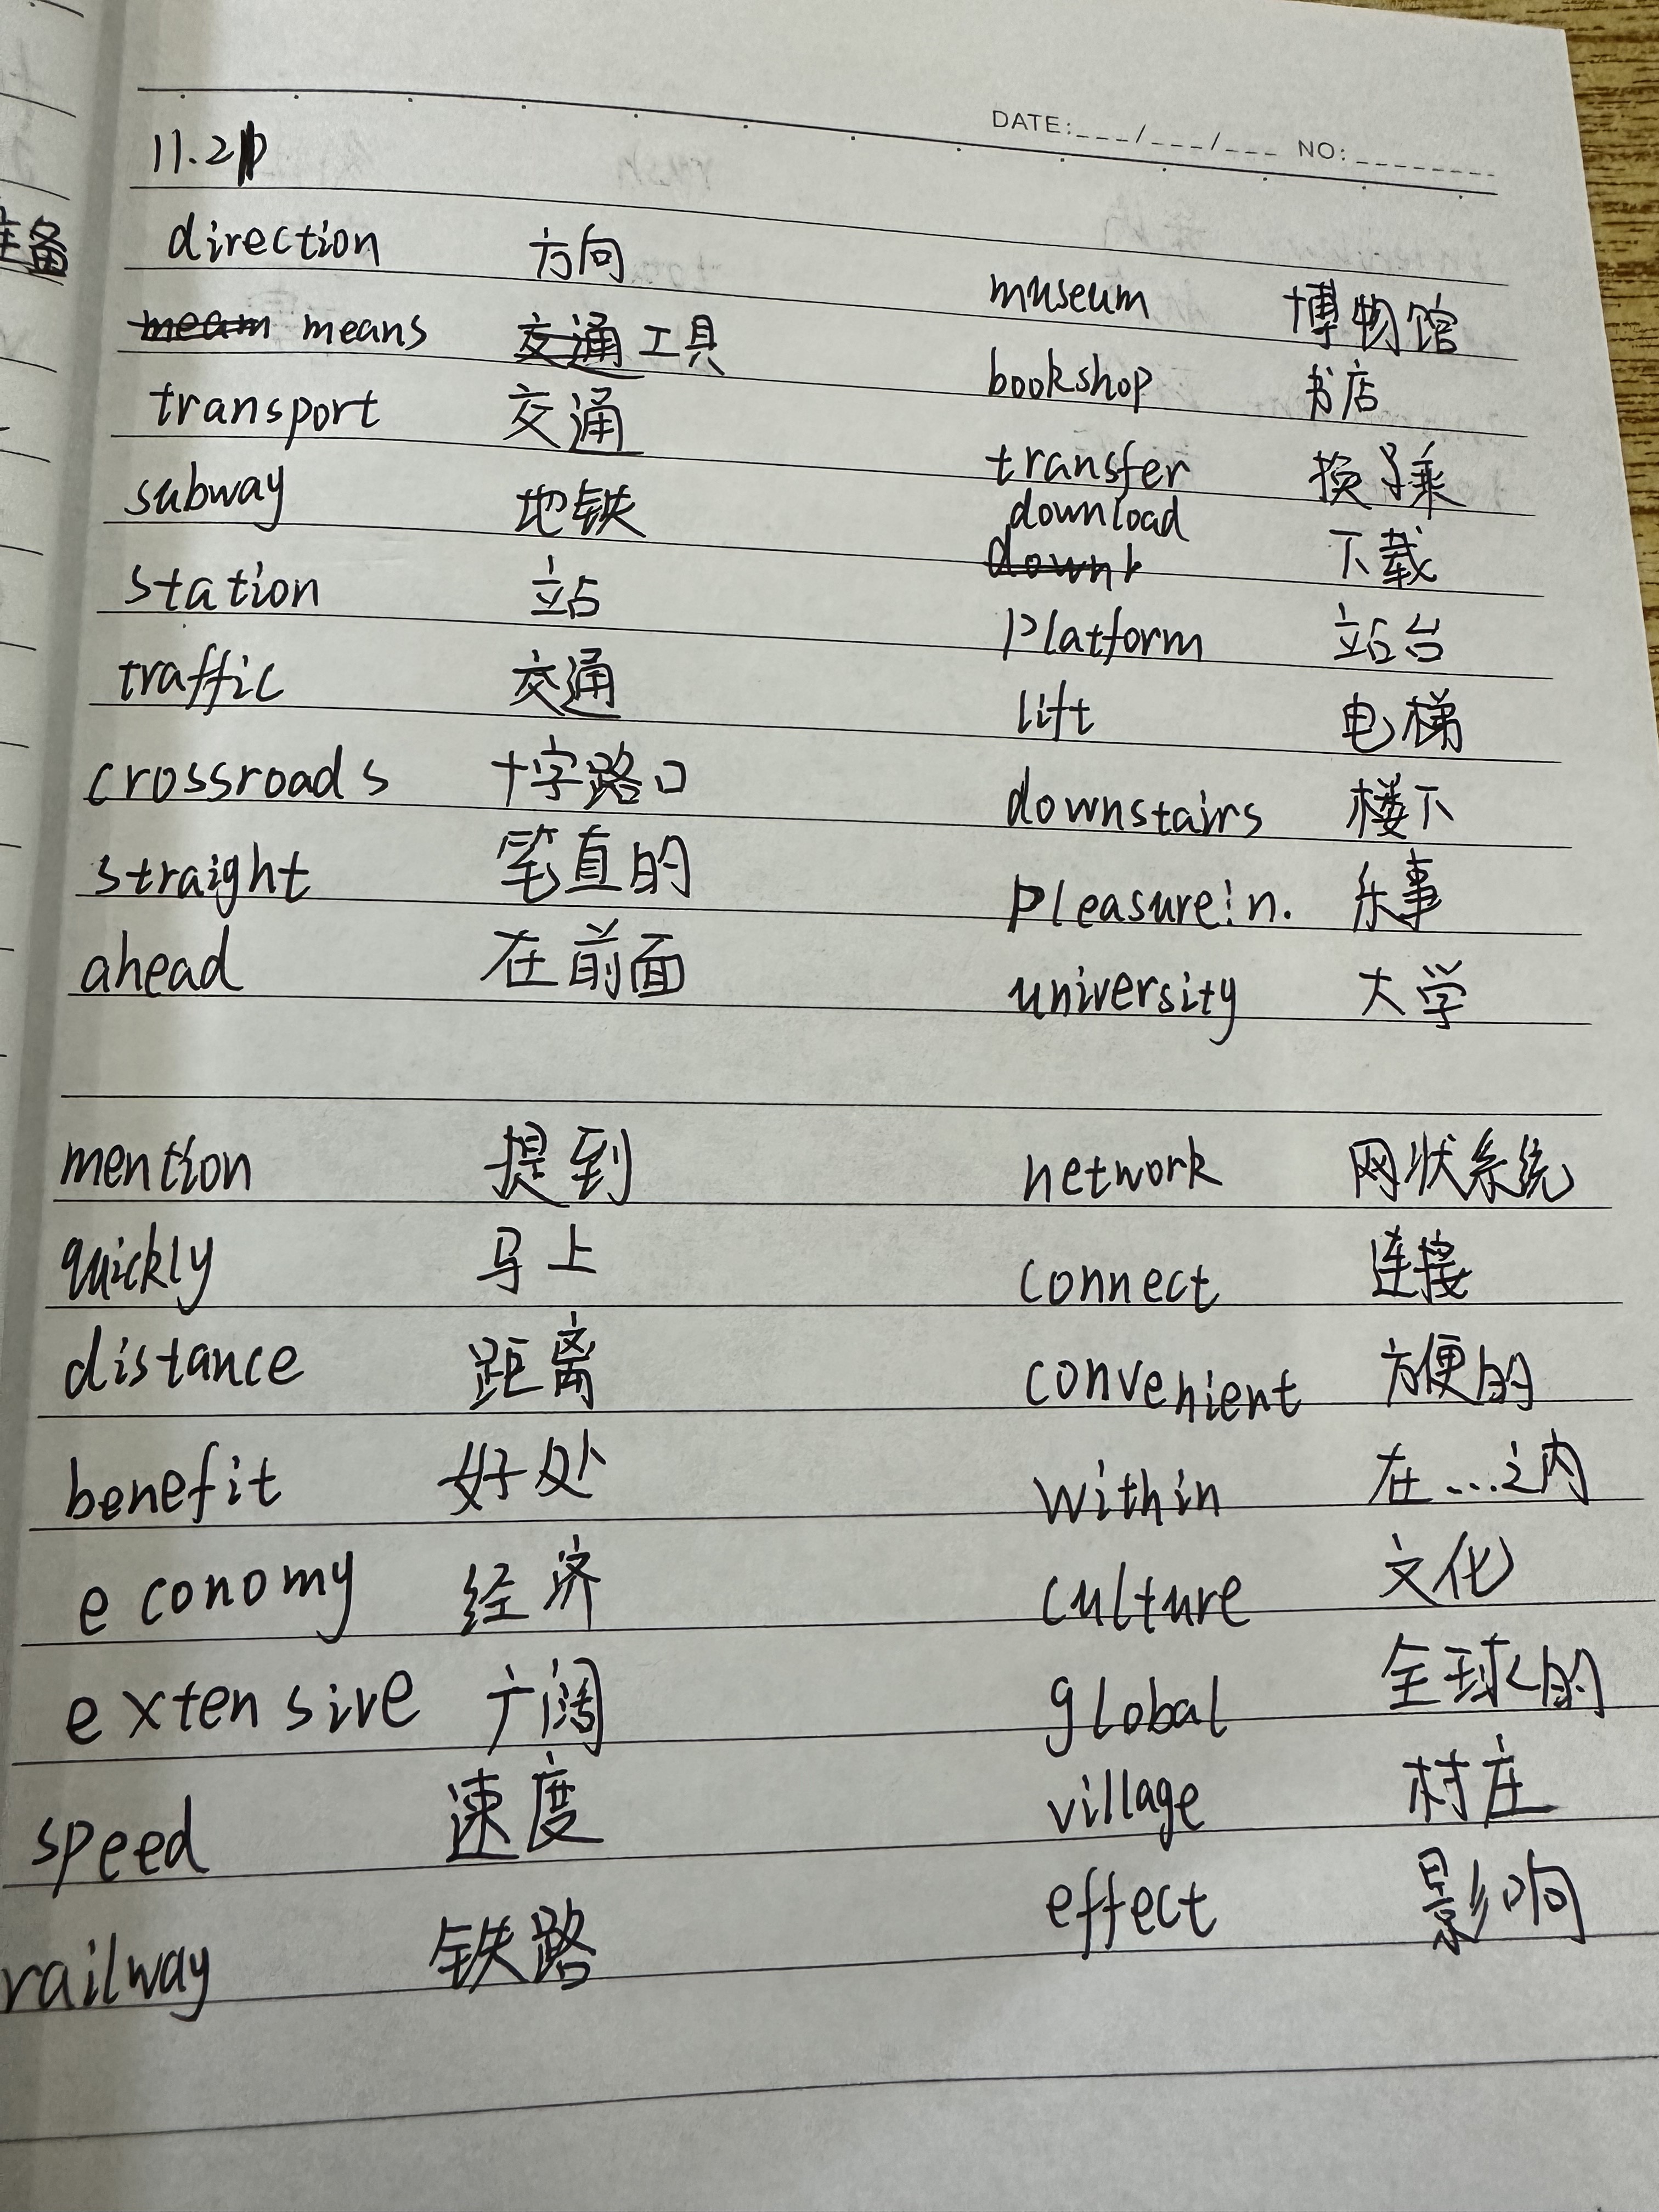 DATE:___/___/___ NO:________
11.21
direction 方向
means 工具
transport 交通
subway 地铁
station 站
traffic 交通
crossroads 十字路口
straight 笔直的
ahead 在前面
museum 博物馆
bookshop 书店
transfer 换乘
download 下载
platform 站台
lift 电梯
downstairs 楼下
pleasure: n. 乐事
university 大学
mention 提到
quickly 马上
distance 距离
benefit 好处
economy 经济
extensive 广阔
speed 速度
railway 铁路
network 网状系统
connect 连接
convenient 方便的
within 在...之内
culture 文化
global 全球的
village 村庄
effect 影响